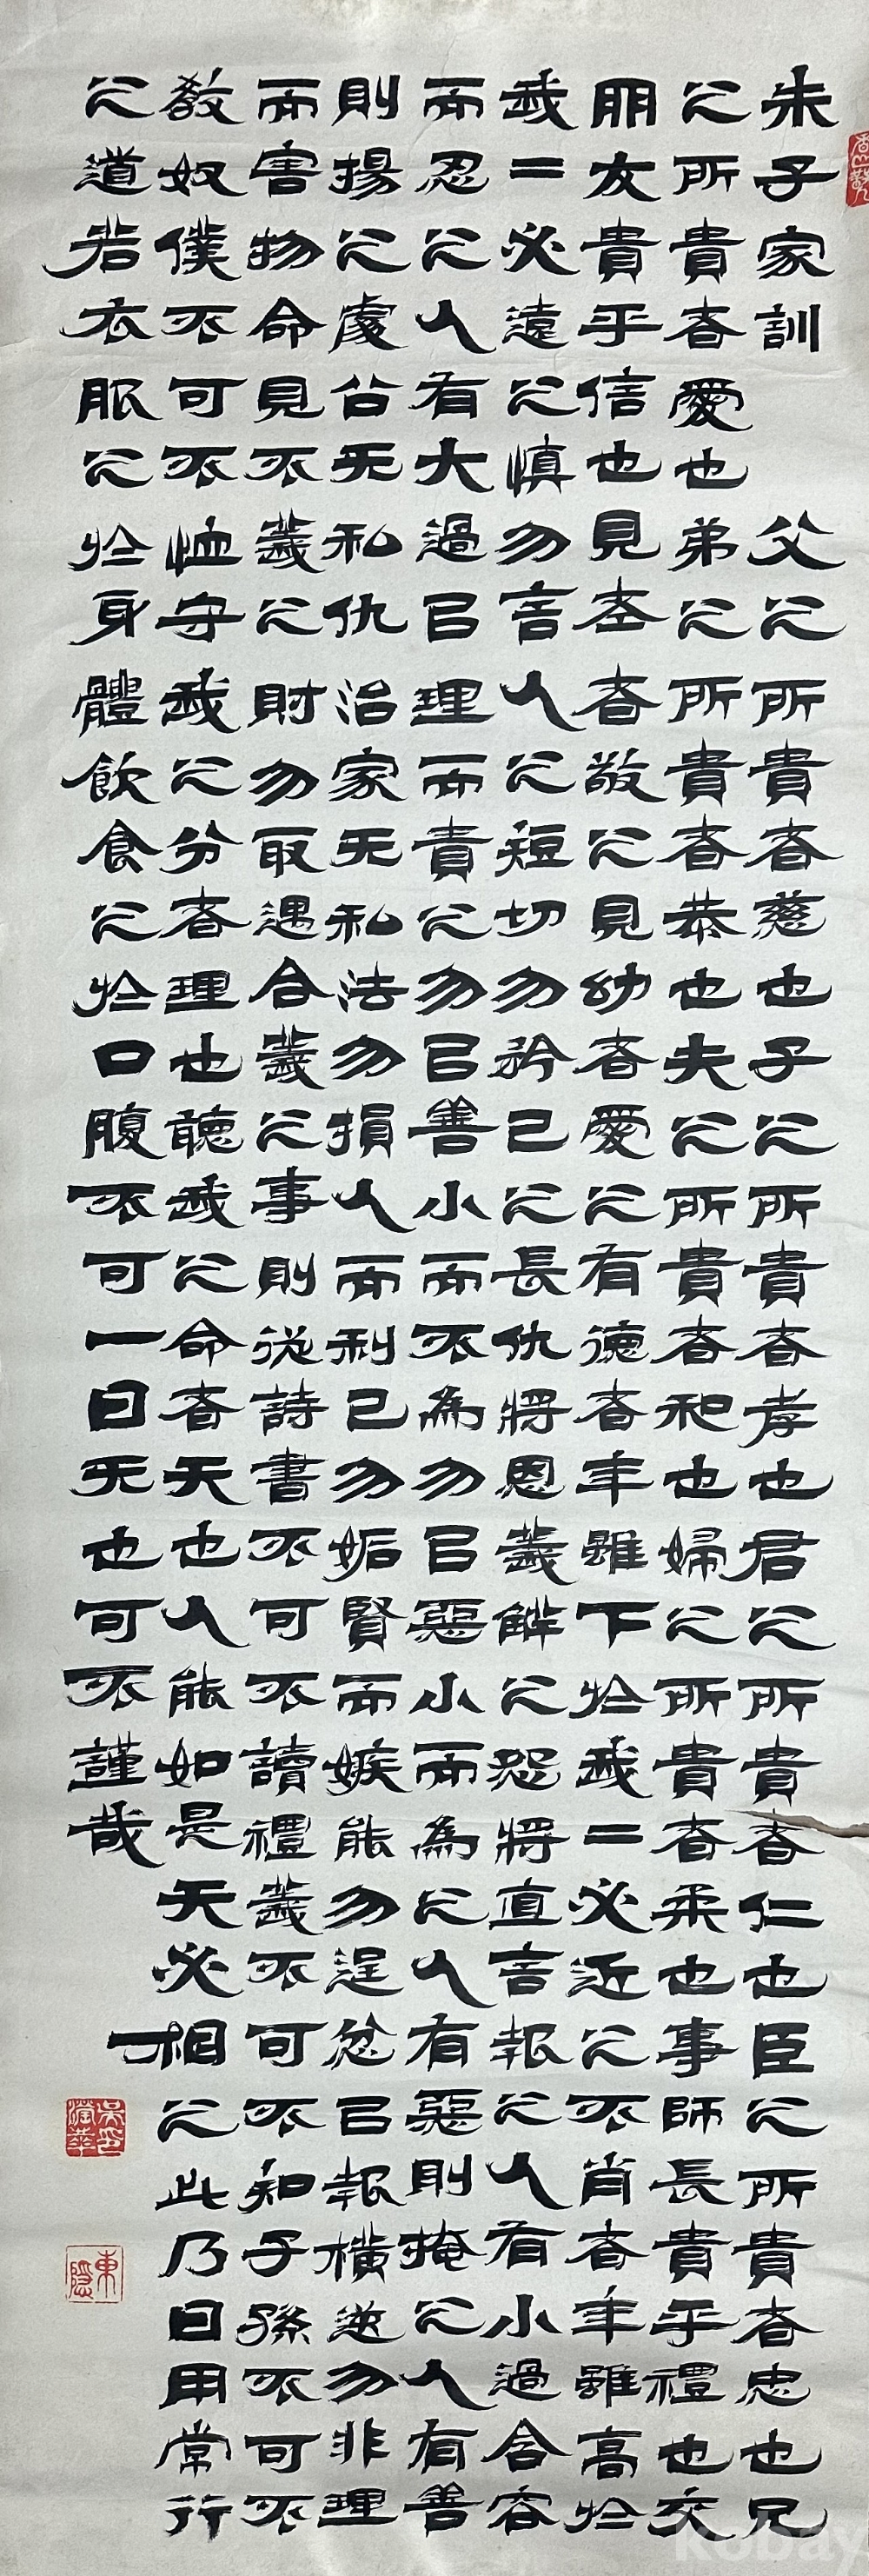 朱子家訓 父之所貴者慈也子之所貴者孝也君之所貴者仁也臣之所貴者忠也兄
之所貴者愛也弟之所貴者恭也夫之所貴者和也婦之所貴者柔也事師長貴乎禮也交
朋友貴乎信也見老者敬之見幼者愛之有德者年雖下於我=必近之不肖者年雖高於
我=必遠之慎勿言人之短切勿矜己之長仇將恩義觧之怨將直言報之人有小過含容
而忍之人有大過㠯理而責之勿㠯善小而不為勿㠯惡小而為之人有惡則掩之人有善
則揚之處公无私仇治家无私法勿損人而利己勿妬賢而嫉能勿逞忿㠯報橫逆勿非理
而害物命見不義之財勿取遇合義之事則從詩書不可不讀禮義不可不知子孫不可不
教奴僕不可不恤守我之分者理也聽我之命者天也人能如是天必相之此乃日用常行
之道若衣服之於身體飲食之於口腹不可一日无也可不謹哉
東隱
kobay